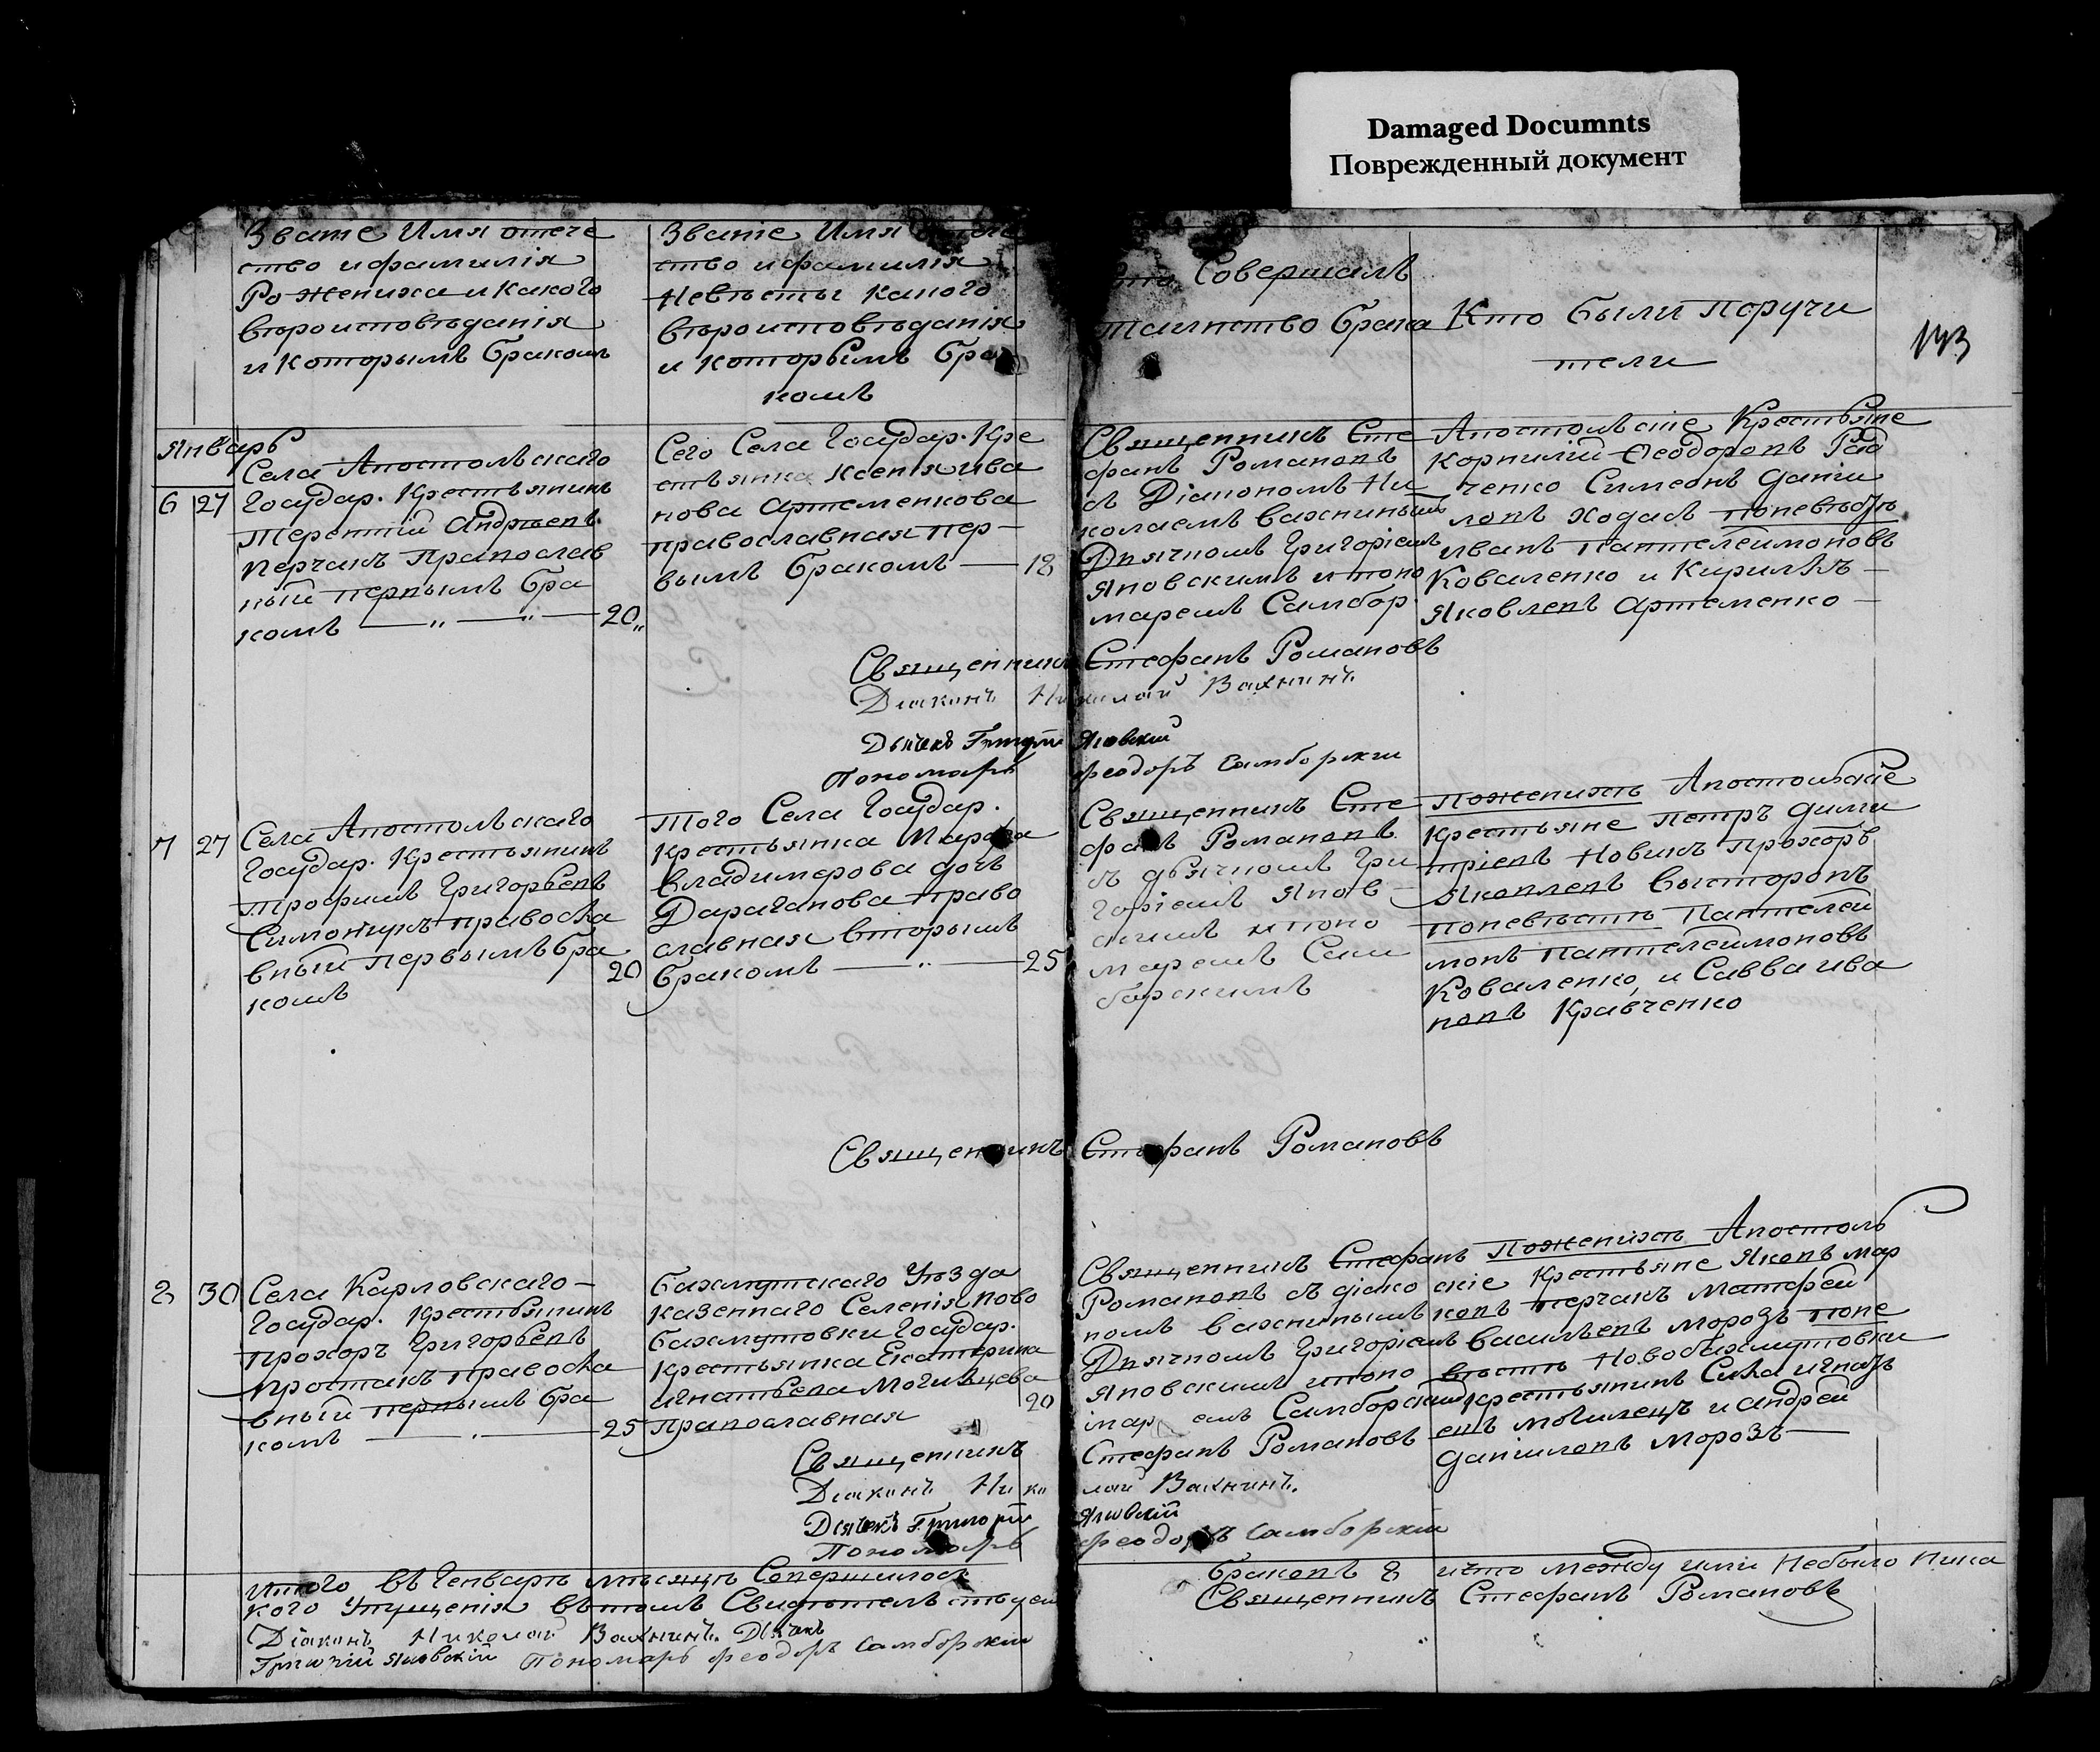 Damaged Documnts
Поврежденный документ
Званіе Имя отече
ство и фамилія
Ро Жениха и какого
вѣроисповѣданія
и Которымъ бракомъ
Званіе Имя
ство и фамилія
Невѣсты какого
вѣроисповѣданія
и которымъ бра
комъ
Совершалъ
Таинство брака
Кто были поручи
тели
143
Январь
6 27
Села Апостольскаго
Государ. Крестьянинъ
Терентій Андреевъ
Перчакъ Православ
ный первымъ бра
комъ 20
Сего Села Государ. Кре
стьянка Ксенія ива
нова Артеменкова
православная пер
вымъ бракомъ 18
Священникъ Сте
фанъ Романовъ
съ Діакономъ Ни
колаемъ Вахнинымъ
Дьячкомъ Григоріемъ
Яновскимъ и поно
маремъ Самбор.
Апостольскіе Крестьяне
Корнилій Ѳеодоровъ
ченко Симеонъ Дани
ловъ Ходасъ поневѣстѣ
иванъ Пантелеимоновъ
Коваленко и Кириллъ
Яковлевъ Артеменко
Священникъ Стефанъ Романовъ
Діаконъ Николай Вахнинъ
Дьячекъ Григорій Яновскій
Пономарь Феодоръ Самборскій
7 27
Села Апостольскаго
Государ. Крестьянинъ
Трофимъ Григорьевъ
Симончукъ правосла
вный первымъ бра
комъ 20
Того Села Государ.
Крестьянка Марфа
Владимерова дочь
Дараганова право
славная вторымъ
бракомъ 25
Священникъ Сте
фанъ Романовъ
съ дьячкомъ Гри
горіемъ Янов
скимъ и поно
маремъ Сам
борскимъ
пожениху Апостольскіе
Крестьяне Петръ Дими
тріевъ Новикъ Прохоръ
Яковлевъ Высторопъ
поневѣстѣ Пантелеи
монъ Пантелеимоновъ
Коваленко, и Савва ива
новъ Кравченко
Священникъ Стефанъ Романовъ
8 30
Села Карловскаго
Государ. Крестьянинъ
Прохоръ Григорьевъ
Простакъ правосла
вный первымъ бра
комъ 25
Бахмутскаго Уѣзда
казеннаго Селенія Ново
бахмутовки Государ.
Крестьянка Екатерина
игнатьева Могилцева 20
Православная
Священникъ Стефанъ
Романовъ съ діако
номъ Вахнинымъ
Дьячкомъ Григоріемъ
Яновскимъ и поно
маремъ Самборскимъ
пожениху Апостоль
скіе Крестьяне Яковъ Мар
ковъ Перчакъ Матфей
Васильевъ Морозъ поне
вѣстѣ Новобахмутовки
Крестьянинъ Сила игнать
евъ Могилецъ и Андрей
Даниловъ Морозъ
Священникъ Стефанъ Романовъ
Діаконъ Николай Вахнинъ.
Дьячекъ Григорій Яновскій
Пономарь Феодоръ Самборскій
Итого въ Генварѣ мѣсяцѣ Совершилось браковъ 8 и что между ими Небыло Ника
кого Упущенія въ томъ Свидѣтельствуемъ Священникъ Стефанъ Романовъ
Діаконъ Николай Вахнинъ. Дьячекъ
Григорій Яновскій Пономарь Феодоръ Самборскій